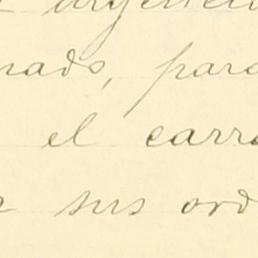 nado, para
el carra
sus ord